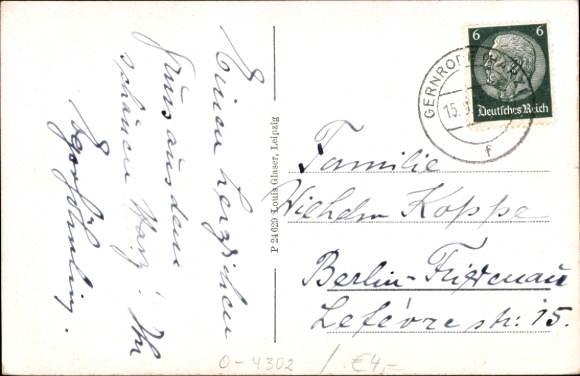 Einen herzlichen
Gruss aus dem
schönen Harz! Ihr
P 24629 Louis Glaser, Leipzig
6 6
Deutsches Reich
GERNRODE (HARZ)
15.
f
Familie
Wilhelm Koppe
Berlin-Friedenau
Lefèvre str: 15.
0-4302 / €4,-